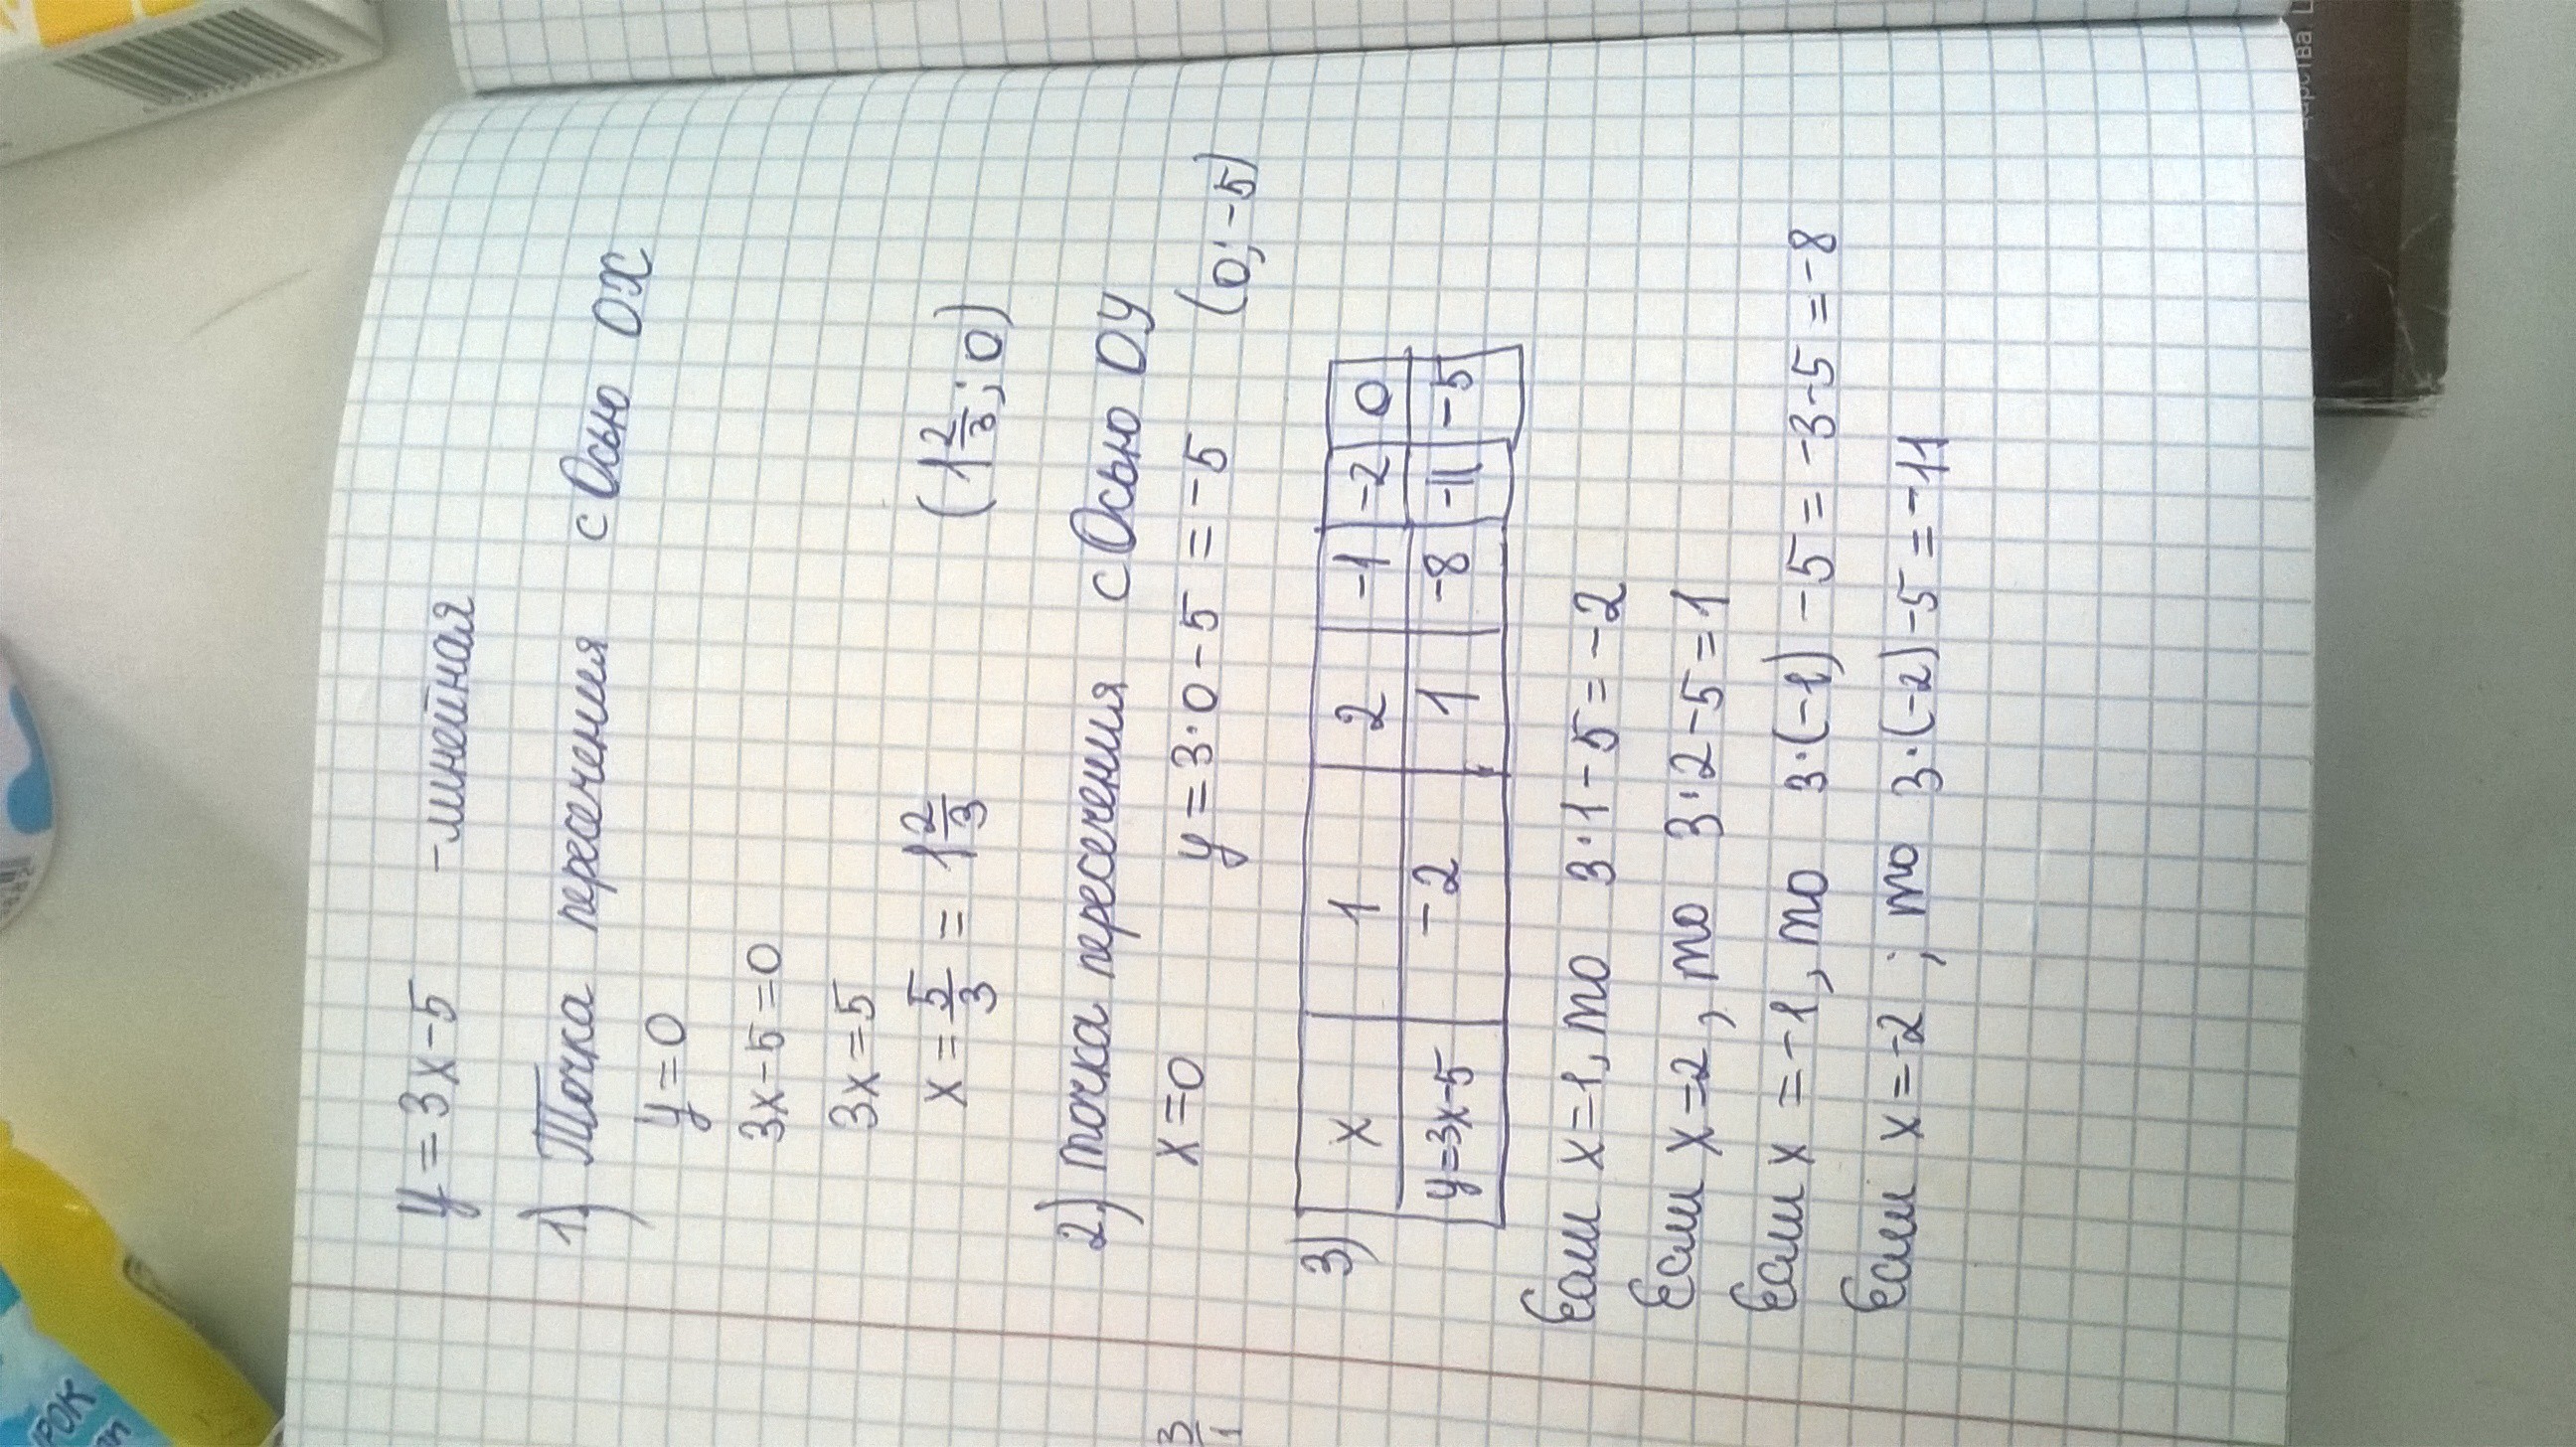 y = 3x - 5 - линейная
1) Точка пересечения с Осью OX
y = 0
3x - 5 = 0
3x = 5
x = 5/3 = 1 2/3 (1 2/3; 0)
2) точка пересечения с Осью ОУ
x = 0 y = 3·0 - 5 = -5 (0; -5)
3) x 1 2 -1 -2 0
y=3x-5 -2 1 -8 -11 -5
Если x = 1, то 3·1 - 5 = -2
Если x = 2, то 3·2 - 5 = 1
Если x = -1, то 3·(-1) - 5 = -3 - 5 = -8
Если x = -2; то 3·(-2) - 5 = -11
3/1
РОК